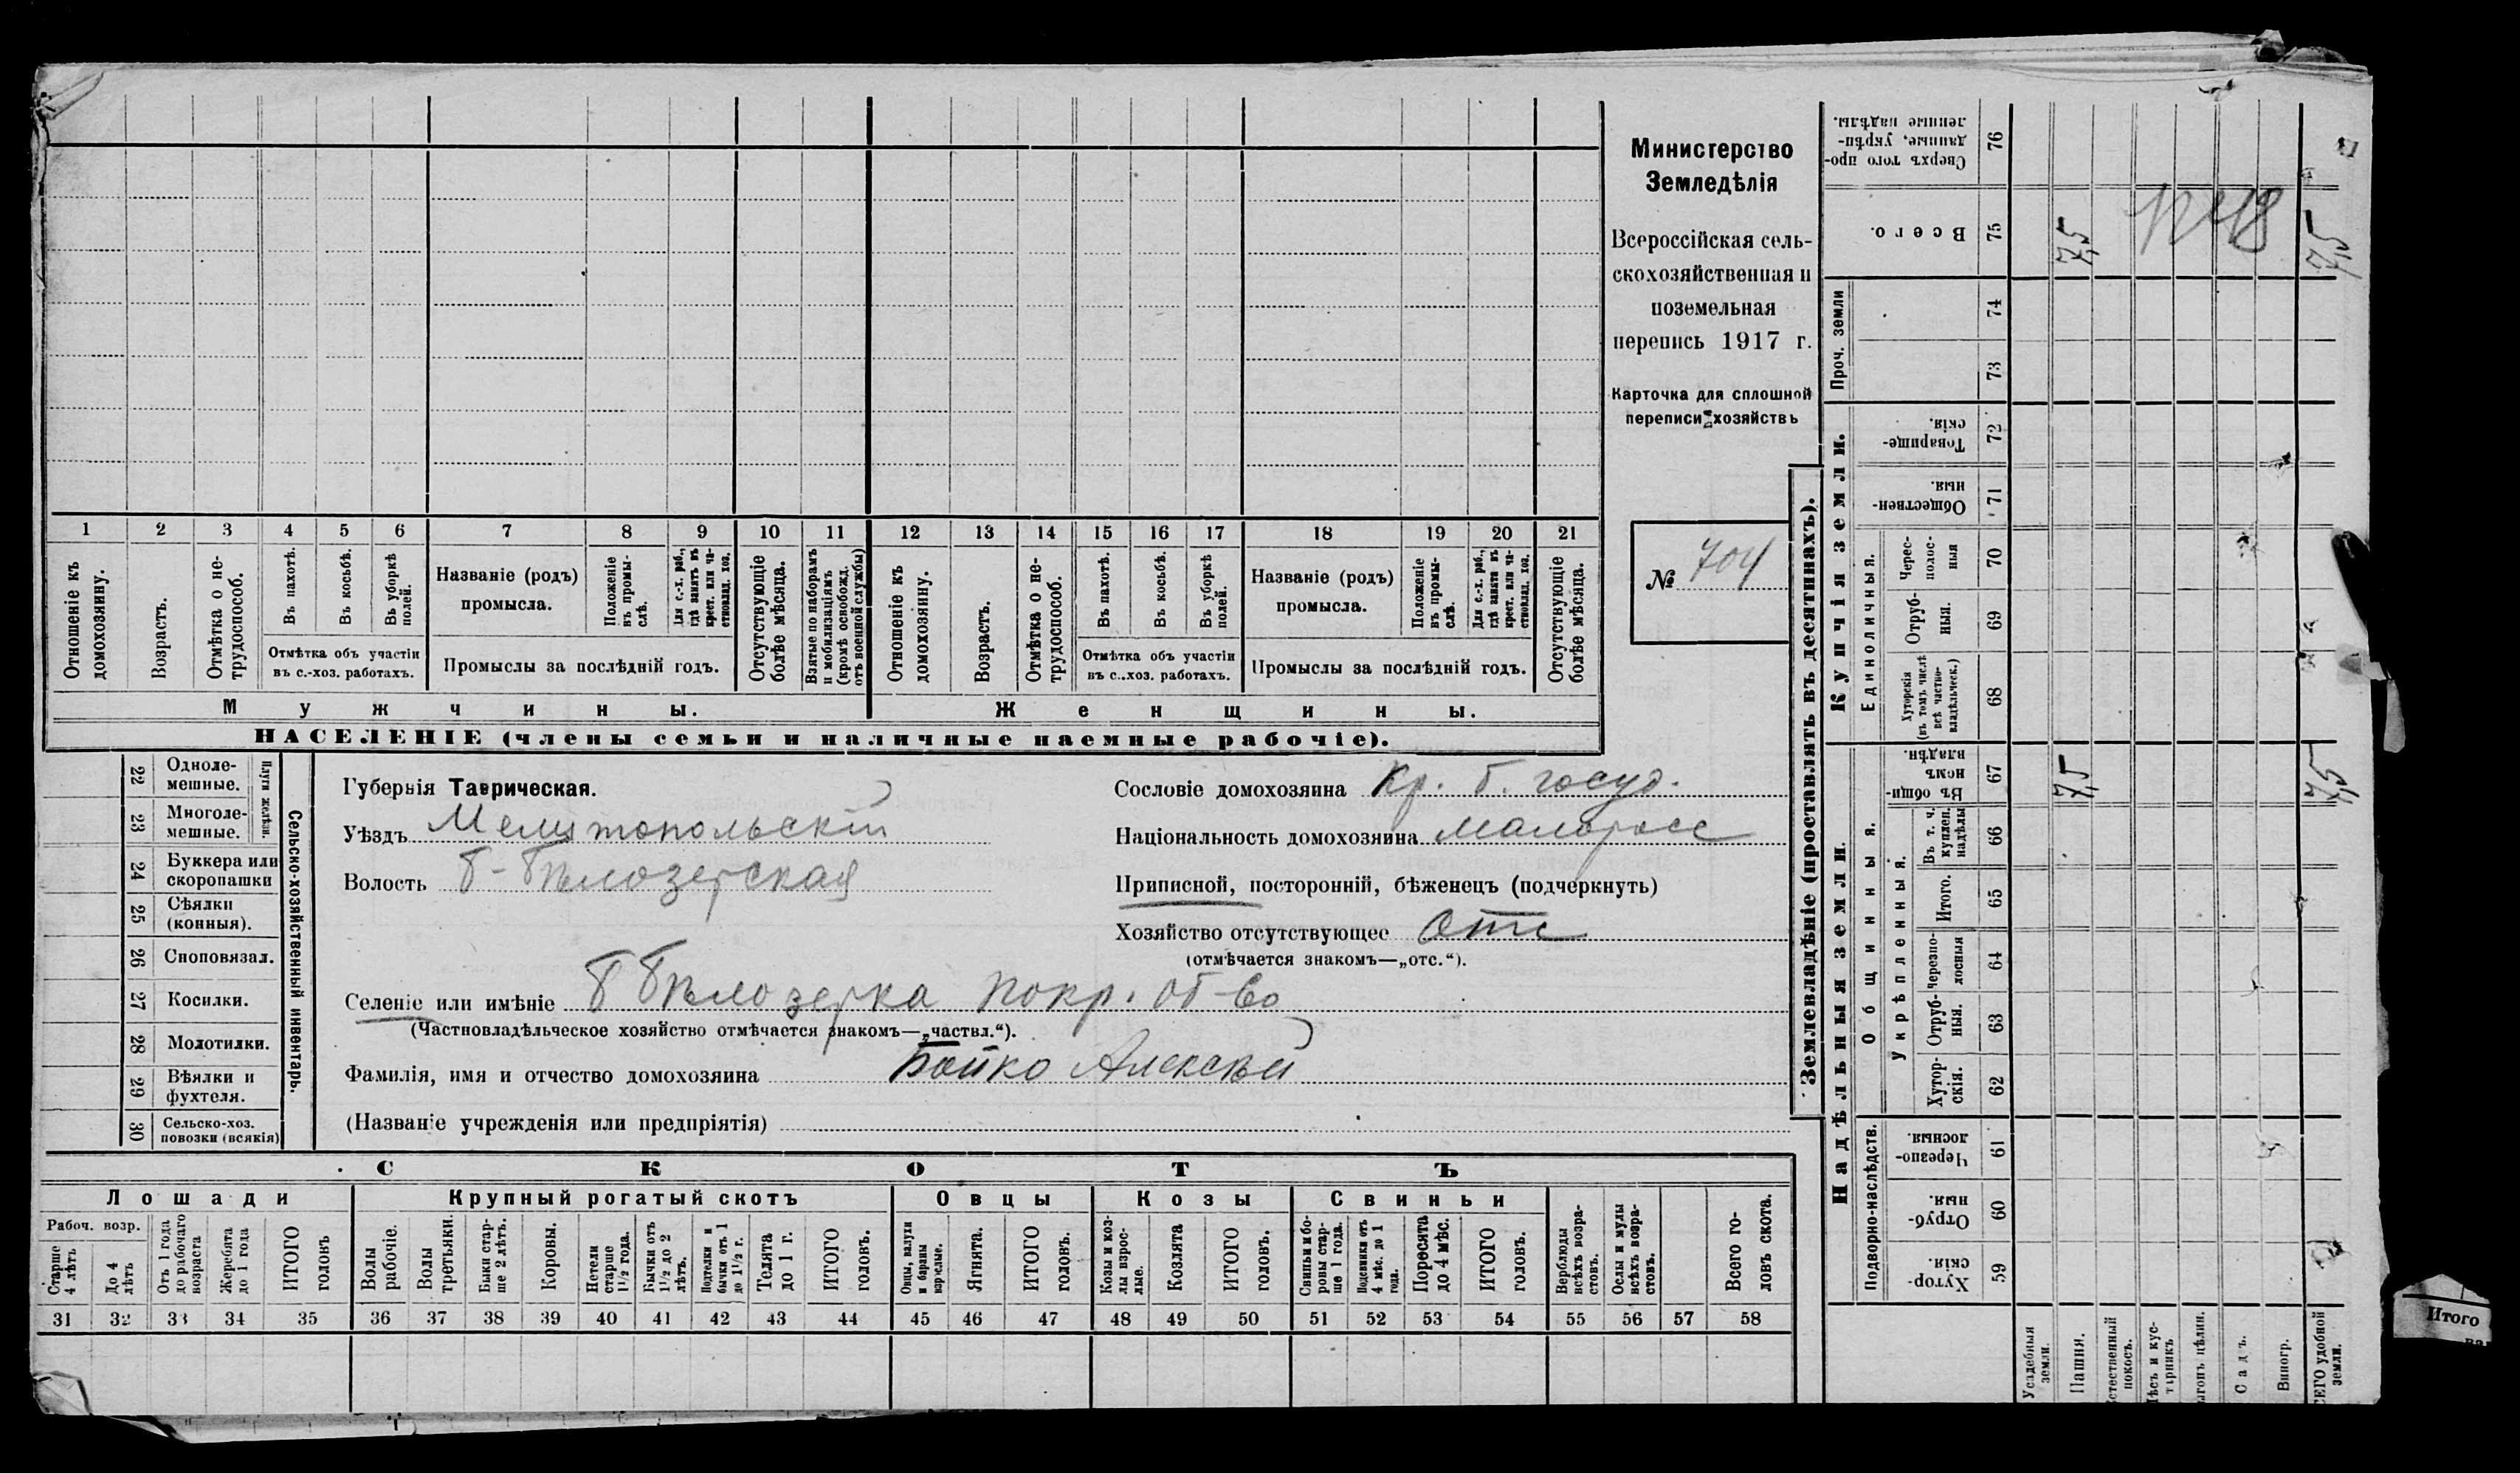 Министерство
Земледѣлія
Всероссійская сель-
скохозяйственная и
поземельная
перепись 1917 г.
Карточка для сплошной
переписи хозяйствъ
№ 704
1 2 3 4 5 6 7 8 9 10 11 12 13 14 15 16 17 18 19 20 21
Отношеніе къ домохозяину.
Возрастъ.
Отмѣтка о не-трудоспособ.
Въ пахотѣ.
Въ косьбѣ.
Въ уборкѣ полей.
Отмѣтка объ участіи
въ с.-хоз. работахъ.
Названіе (родъ)
промысла.
Положеніе въ промы-слѣ.
Для с.-х. раб., гдѣ занятъ въ крест. или ча-стновлад. хоз.
Промыслы за послѣдній годъ.
Отсутствующіе болѣе мѣсяца.
Взятые по наборамъ и мобилизаціямъ (кромѣ освобожд. отъ военной службы)
Отношеніе къ домохозяину.
Возрастъ.
Отмѣтка о не-трудоспособ.
Въ пахотѣ.
Въ косьбѣ.
Въ уборкѣ полей.
Отмѣтка объ участіи
въ с.-хоз. работахъ.
Названіе (родъ)
промысла.
Положеніе въ промы-слѣ.
Для с.-х. раб., гдѣ занята въ крест. или ча-стновлад. хоз.
Промыслы за послѣдній годъ.
Отсутствующіе болѣе мѣсяца.
Мужчины.
Женщины.
НАСЕЛЕНІЕ (члены семьи и наличные наемные рабочіе).
22 Одноле-мешные.
23 Многоле-мешные.
Плуги желѣзн.
24 Буккера или скоропашки
25 Сѣялки (конныя).
26 Споповязал.
27 Косилки.
28 Молотилки.
29 Вѣялки и фухтеля.
30 Сельско-хоз. повозки (всякія)
Сельско-хозяйственный инвентарь.
Губернія Таврическая.
Уѣздъ Мелитопольскій
Волость Б-Бѣлозерская
Селеніе или имѣніе Б Бѣлозерка Покр. об-во
(Частновладѣльческое хозяйство отмѣчается знакомъ—„частвл.“).
Фамилія, имя и отчество домохозяина Бойко Алексѣй
(Названіе учрежденія или предпріятія)
Сословіе домохозяина Кр. б. госуд.
Національность домохозяина Малоросс
Приписной, посторонній, бѣженецъ (подчеркнуть)
Хозяйство отсутствующее Отс
(отмѣчается знакомъ—„отс.“).
СКОТЪ
Лошади
Крупный рогатый скотъ
Овцы
Козы
Свиньи
Рабоч. возр.
Старше 4 лѣтъ
До 4 лѣтъ
Отъ 1 года до рабочаго возраста
Жеребята до 1 года
ИТОГО головъ
Волы рабочіе.
Волы третьяки.
Быки стар-ше 2 лѣтъ.
Коровы.
Нетели старше 1½ года.
Бычки отъ 1½ до 2 лѣтъ.
Подтелки и бычки отъ 1 до 1½ г.
Телята до 1 г.
ИТОГО головъ.
Овцы, валухи и бараны взрослые.
Ягнята.
ИТОГО головъ.
Козы и коз-лы взрос-лые.
Козлята
ИТОГО головъ.
Свиньи и бо-ровы стар-ше 1 года.
Подсвинки отъ 4 мѣс. до 1 года.
Поросята до 4 мѣс.
ИТОГО головъ.
Верблюды всѣхъ возра-стовъ.
Ослы и мулы всѣхъ возра-стовъ.
Всего го-ловъ скота.
31 32 33 34 35 36 37 38 39 40 41 42 43 44 45 46 47 48 49 50 51 52 53 54 55 56 57 58
Землевладѣніе (проставлять въ десятинахъ).
Надѣльныя земли.
Купчія земли.
Проч. земли
Подворно-наслѣдств.
Общинныя.
Укрѣпленныя.
Единоличныя.
Сверхъ того про-данные, укрѣп-ленные надѣлы. 76
Всего. 75 7,5 7,5
74
73
Товарище-скія. 72
Обществен-ныя. 71
Черес-полос-ныя 70
Отруб-ныя. 69
Хуторскія (въ томъ числѣ всѣ частно-владѣльческ.) 68
Въ общи-номъ владѣн. 67 7,5 7,5
Въ т. ч. куплен. надѣлы 66
Итого. 65
Черезпо-лосныя 64
Отруб-ныя. 63
Хутор-скія. 62
Черезпо-лосныя. 61
Отруб-ныя. 60
Хутор-скія. 59
Усадебныя земли.
Пашня.
стественный покосъ.
ѣсъ и кус-тарникъ
ыгонъ цѣлин.
Садъ.
Виногр.
СЕГО удобной земли.
Итого